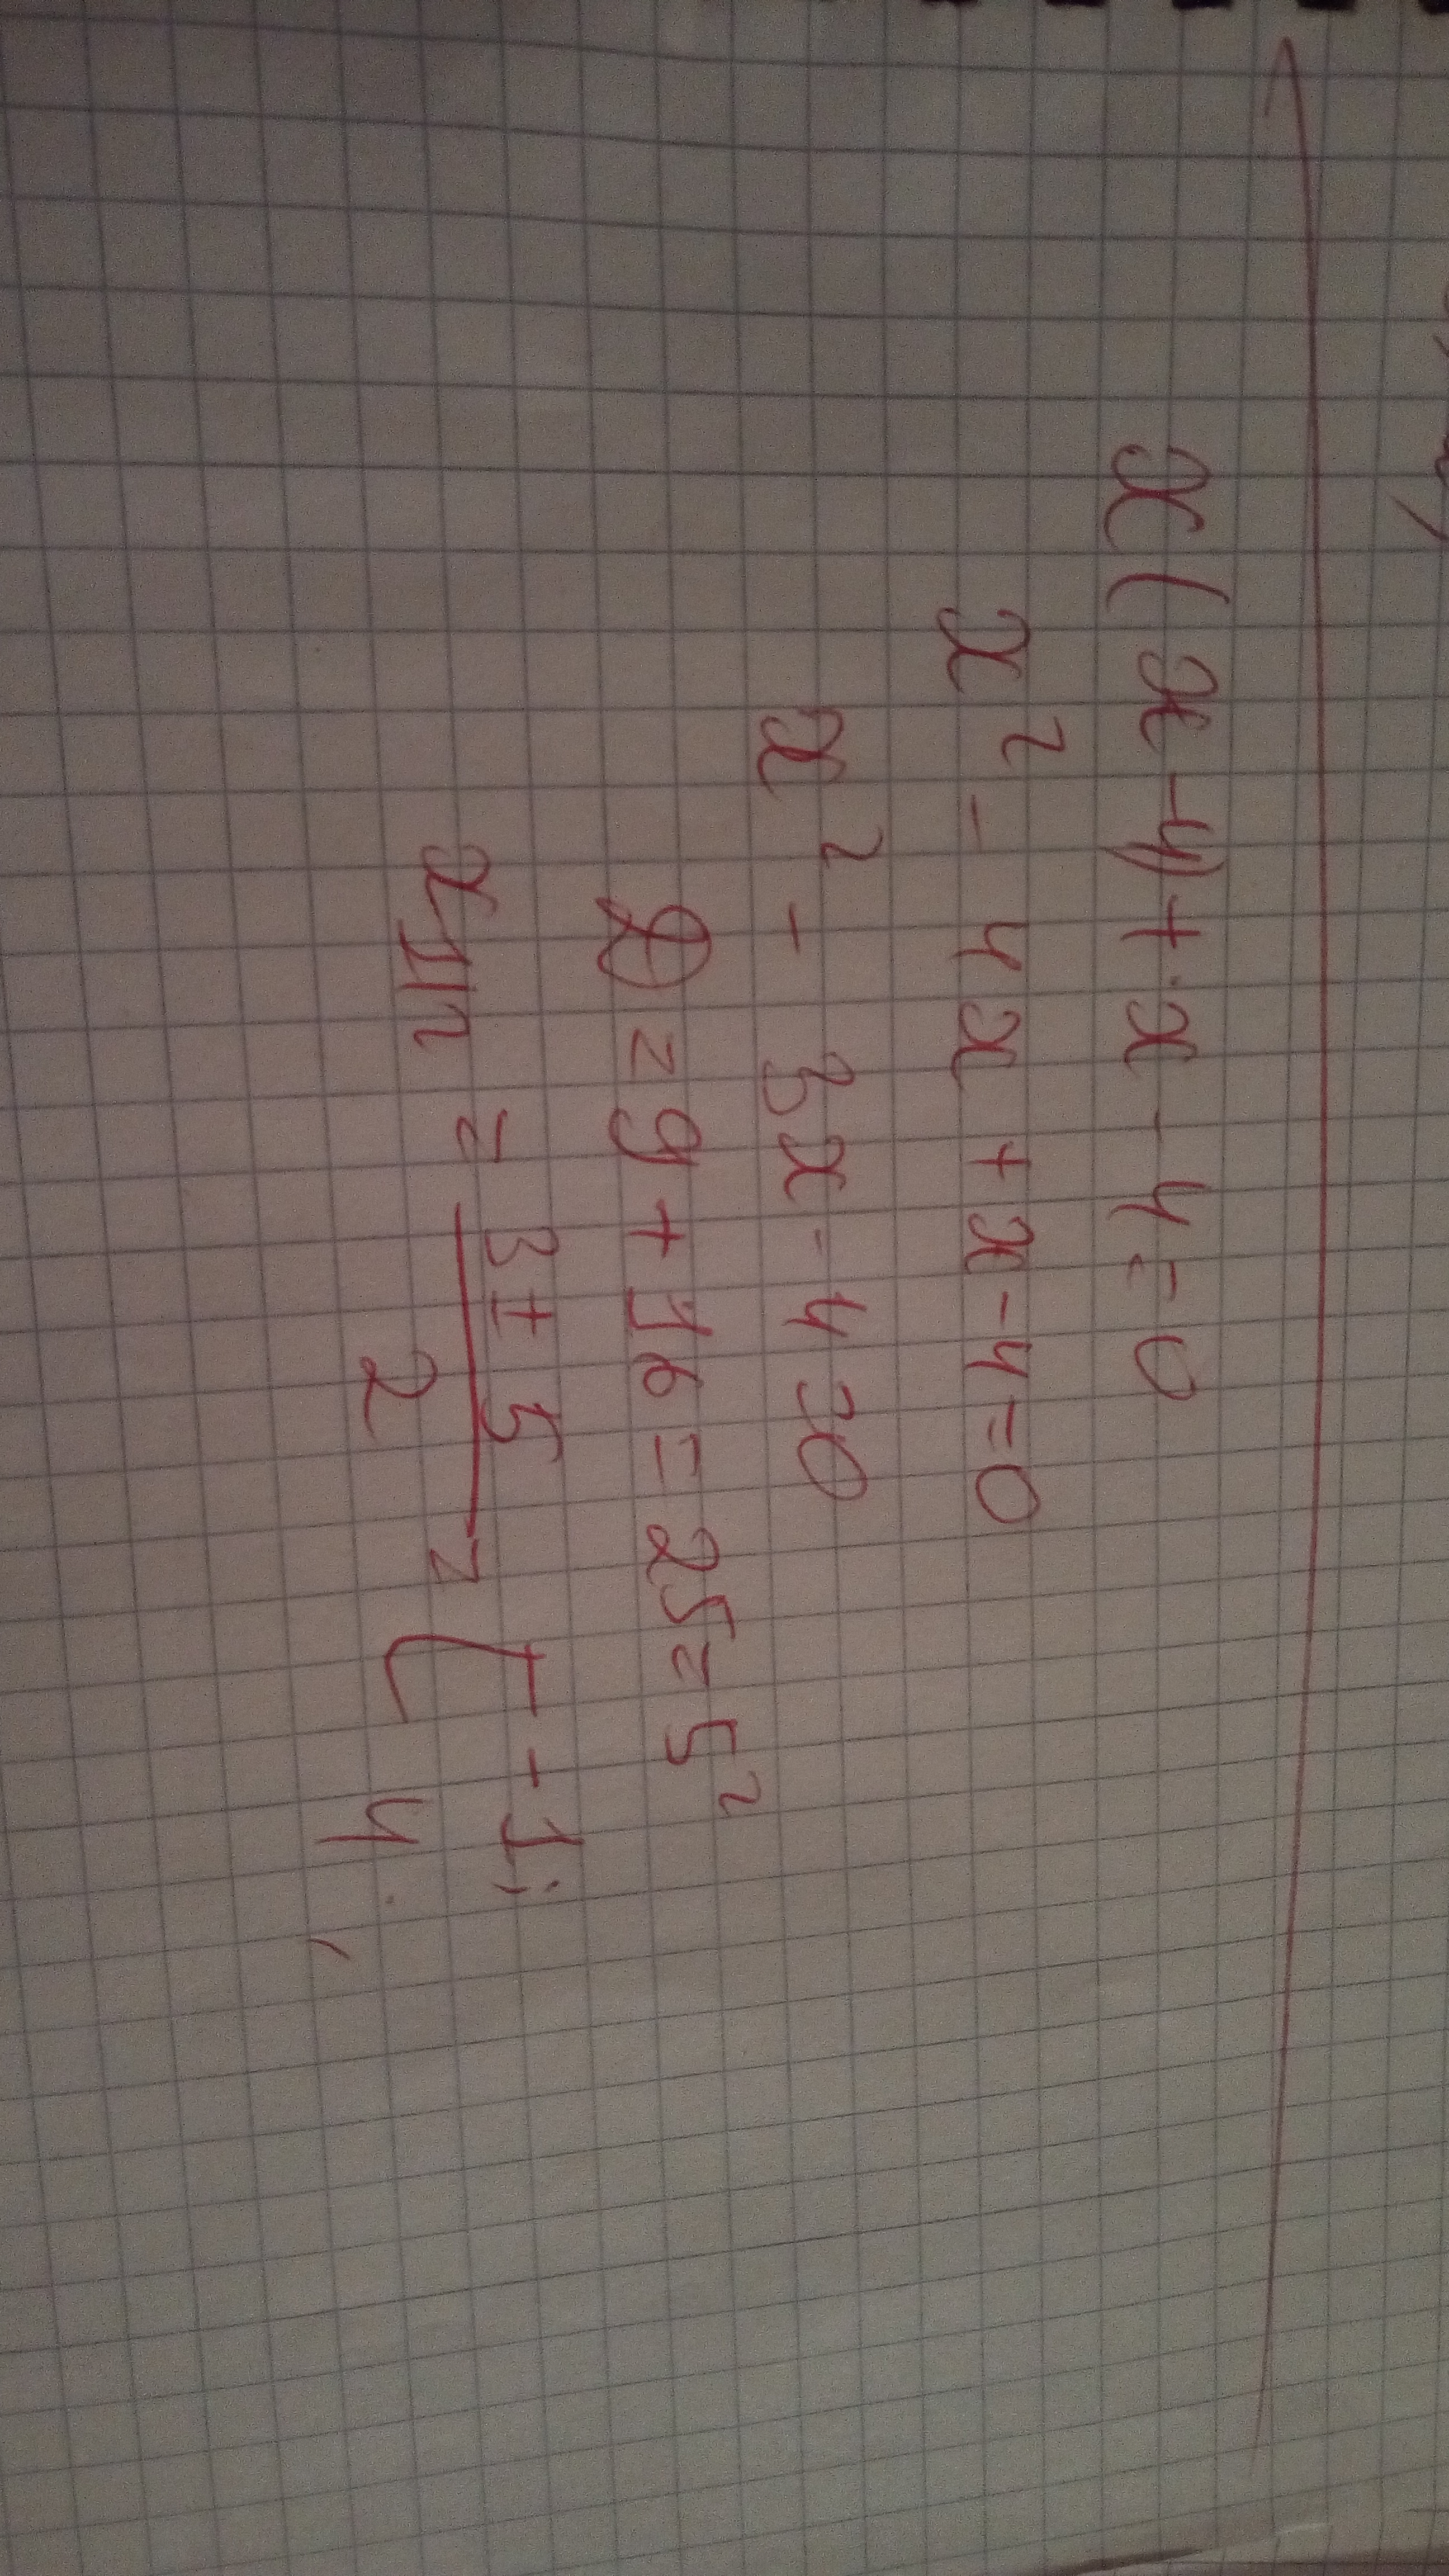 x(x-4)+x-4=0
x²-4x+x-4=0
x²-3x-4=0
D=9+16=25=5²
x1,2=3±5/2=[-1;
4.